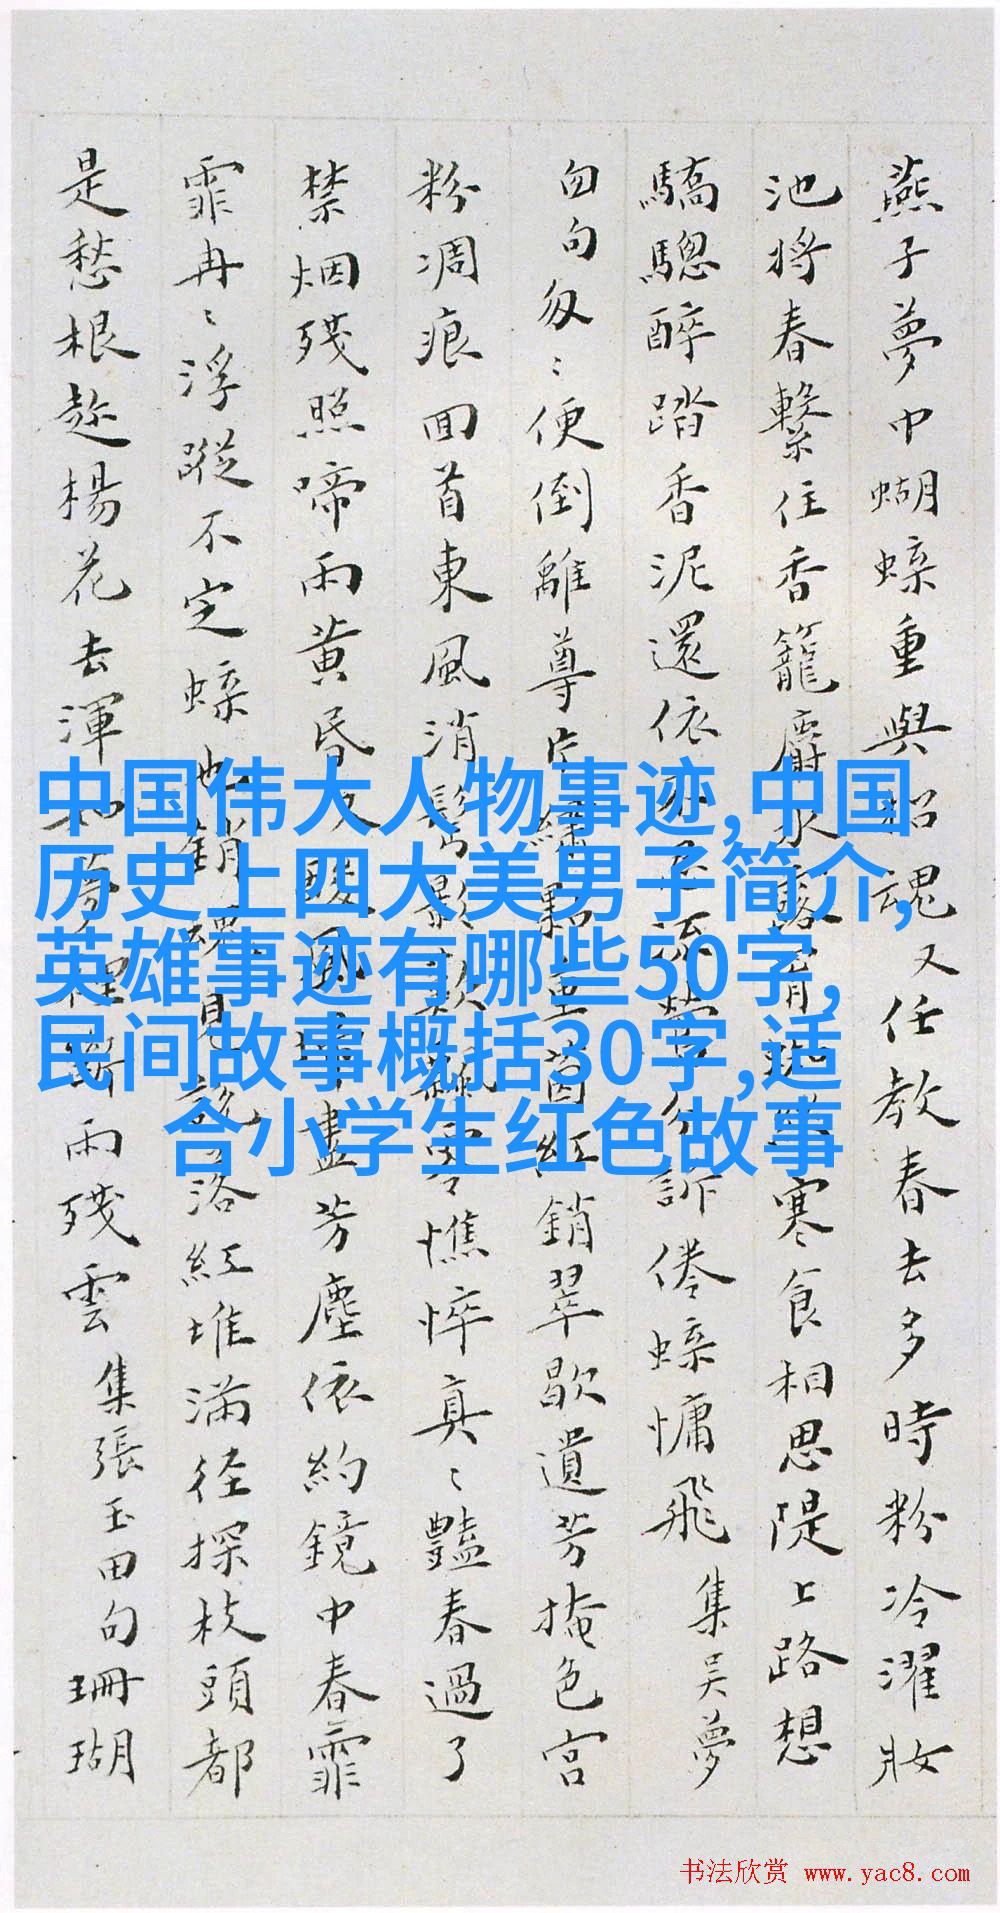 燕子夢中蝴蝶重與招魂又任教春去多時粉冷濯妝
池將春繫住香籠麝水膩寒食相思隄上路想
驕驄醉踏香泥還依訴倦蝶慵飛集吴夢
勿句匆〻便倒離尊茵紅銷翠歇遺芳掩色宫
粉凋痕回首東風消鬢影飄零憔悴真〻豔春過了
禁烟殘照啼雨黄昏又盡芳塵依約鏡中春霏
霏冉〻浮蹤不定蝶也銷魂見説落紅堆滿径探枝頭都
是愁根趁楊花去渾和夢斷雨殘雲集張玉田句珊瑚
中国伟大人物事迹,中国
历史上四大美男子简介,
英雄事迹有哪些50字,
民间故事概括30字,适
合小学生红色故事
书法欣赏 www.yac8.com